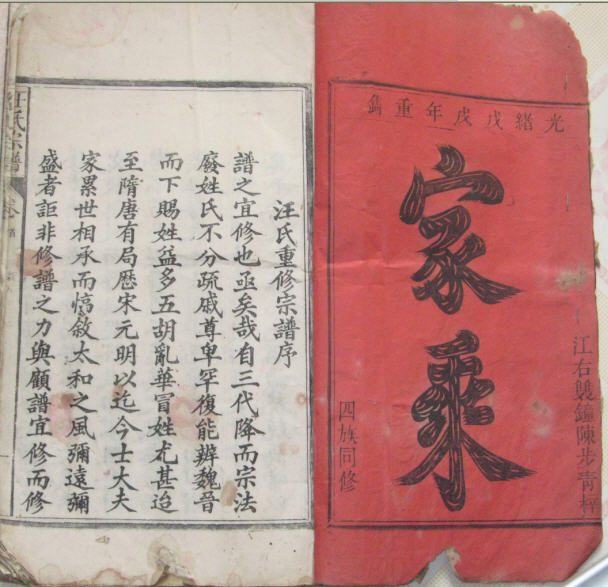 光緒戊戌年重鐫
江右雙鐘陳步青梓
家乘
四族同修
汪氏重修宗譜序
譜之宜修也亟矣哉自三代降而宗法
廢姓氏不分疏戚尊卑罕復能辨魏晉
而下賜姓益多五胡亂華冒姓尤甚迨
至隋唐有局歷宋元明以迄今士大夫
家累世相承而惇敘太和之風彌遠彌
盛者詎非修譜之力與顧譜宜修而修
汪氏宗譜